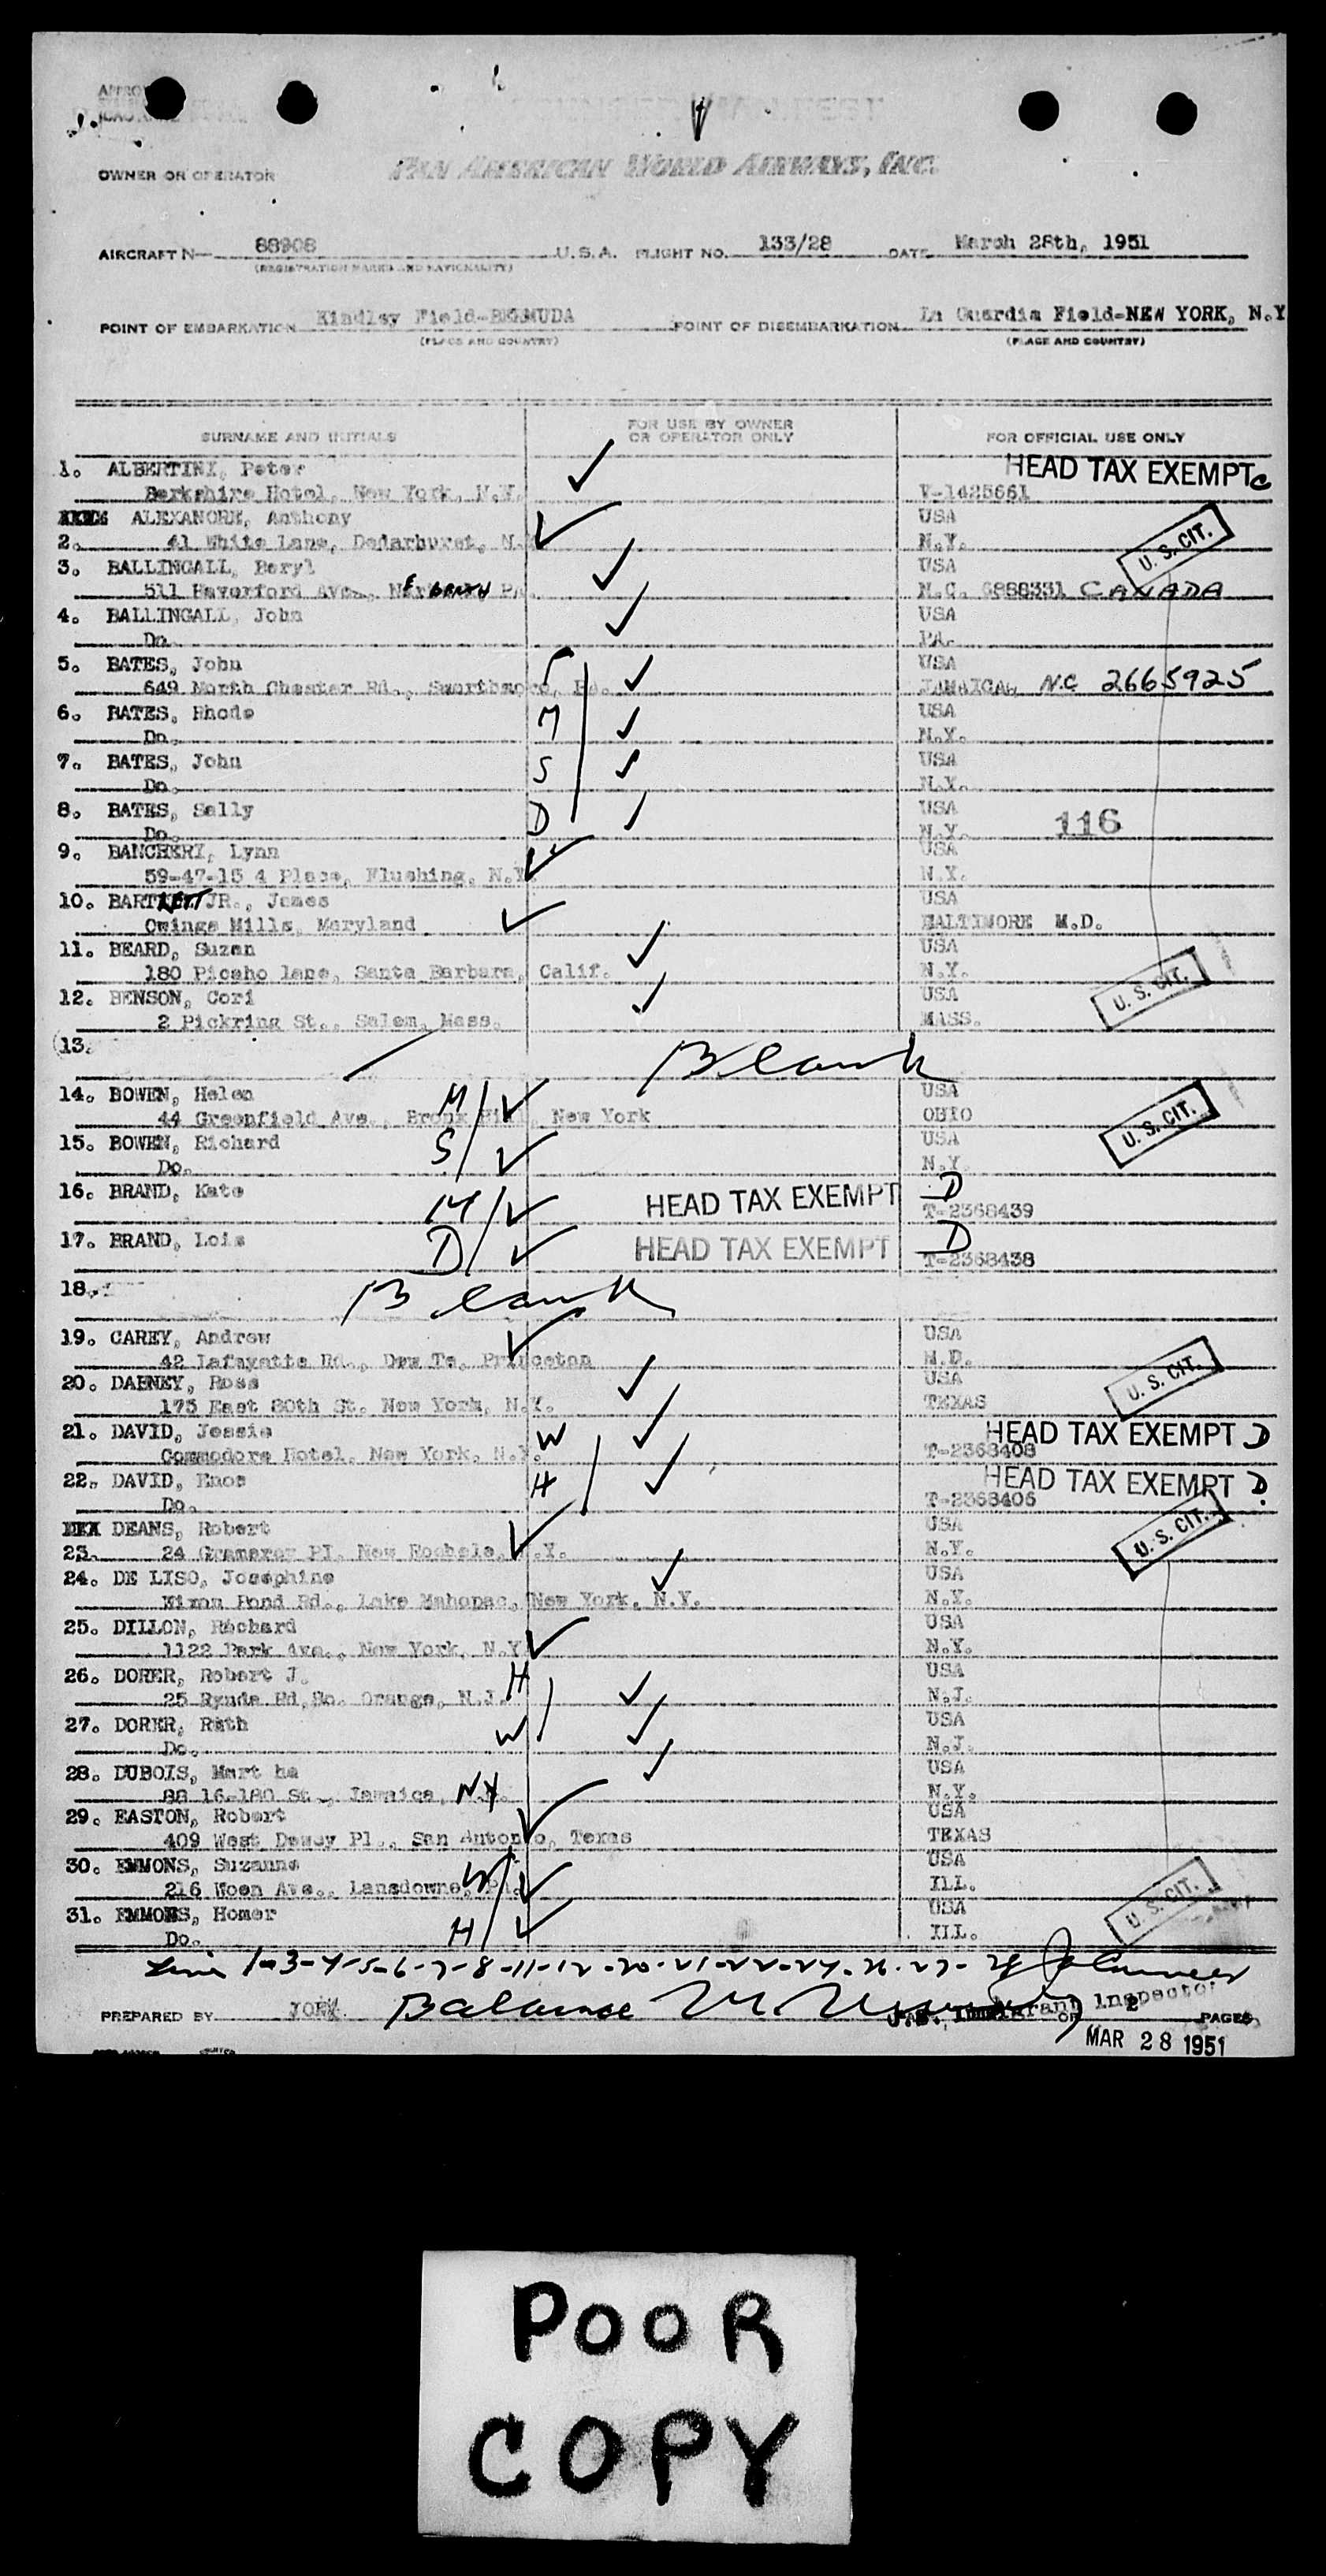 OWNER OR OPERATOR PAN AMERICAN WORLD AIRWAYS, INC.
AIRCRAFT N— 88908 U.S.A. FLIGHT NO. 133/28 DATE March 28th, 1951
(REGISTRATION MARKS AND NATIONALITY)
POINT OF EMBARKATION Kindley Field-BERMUDA POINT OF DISEMBARKATION La Guardia Field-NEW YORK, N.Y
(PLACE AND COUNTRY) (PLACE AND COUNTRY)
SURNAME AND INITIALS FOR USE BY OWNER OR OPERATOR ONLY FOR OFFICIAL USE ONLY
1. ALBERTINI, Peter HEAD TAX EXEMPT C
Berkshire Hotel, New York, N.Y. V-1425661
ALEXANDRE, Anthony USA
2. 41 White Lane, Dedarhurst, N. N.Y. U.S. CIT.
3. BALLINGALL, Beryl USA
511 Haverford Ave., PA. N.C. 6888331 CANADA
4. BALLINGALL, John USA
Do. PA.
5. BATES, John F USA
649 North Chester Rd., Pa. JAMAICA, N.C. 2665925
6. BATES, Rhode M USA
Do. N.Y.
7. BATES, John S USA
Do. N.Y.
8. BATES, Sally D USA
Do. N.Y. 116
9. BANCHERI, Lynn USA
59-47-15 4 Place, Flushing, N.Y. N.Y.
10. BARTLETT JR., James USA
Owings Mills, Maryland BALTIMORE M.D.
11. BEARD, Suzan USA
180 Picaho lane, Santa Barbara, Calif. N.Y. U.S. CIT.
12. BENSON, Cori USA
2 Pickring St., Salem, Mass. MASS.
13. Blank
14. BOWEN, Helen M USA
44 Greenfield Ave., New York OHIO U.S. CIT.
15. BOWEN, Richard S USA
Do. N.Y.
16. BRAND, Kate M HEAD TAX EXEMPT D
T-2368439
17. BRAND, Lois D HEAD TAX EXEMPT D
T-2368438
18. Blank
19. CAREY, Andrew USA
42 Lafayette Rd., Princeton N.D.
20. DABNEY, Ross USA U.S. CIT.
175 East 80th St. New York, N.Y. TEXAS
21. DAVID, Jessie W HEAD TAX EXEMPT D
Commodore Hotel, New York, N.Y. T-2368408
22. DAVID, Enos H HEAD TAX EXEMPT D
Do. T-2368406
DEANS, Robert USA U.S. CIT.
23. 24 Gramarcy Pl, New Rochele, N.Y. N.Y.
24. DE LISO, Josephine USA
Nixon Pond Rd., Lake Mahopac, New York, N.Y. N.Y.
25. DILLON, Richard USA
1122 Park Ave., New York, N.Y. N.Y.
26. DORER, Robert J. H USA
25 Rynda Rd, So. Orange, N.J. N.J.
27. DORER, Rath W USA
Do. N.J.
28. DUBOIS, Mart ha USA
88 16-180 St., Jamaica, NY. N.Y.
29. EASTON, Robert USA
409 West Dewey Pl., San Antonio, Texas TEXAS
30. EMMONS, Suzanne W USA
216 Ave., Lansdowne, Pa. ILL. U.S. CIT.
31. EMMONS, Homer H USA
Do. ILL.
Line 1-3-4-5-6-7-8-11-12-20-21-22-24-26-27-28
PREPARED BY YORK Balance Immigrant Inspector OF 2 PAGES
MAR 28 1951
POOR
COPY